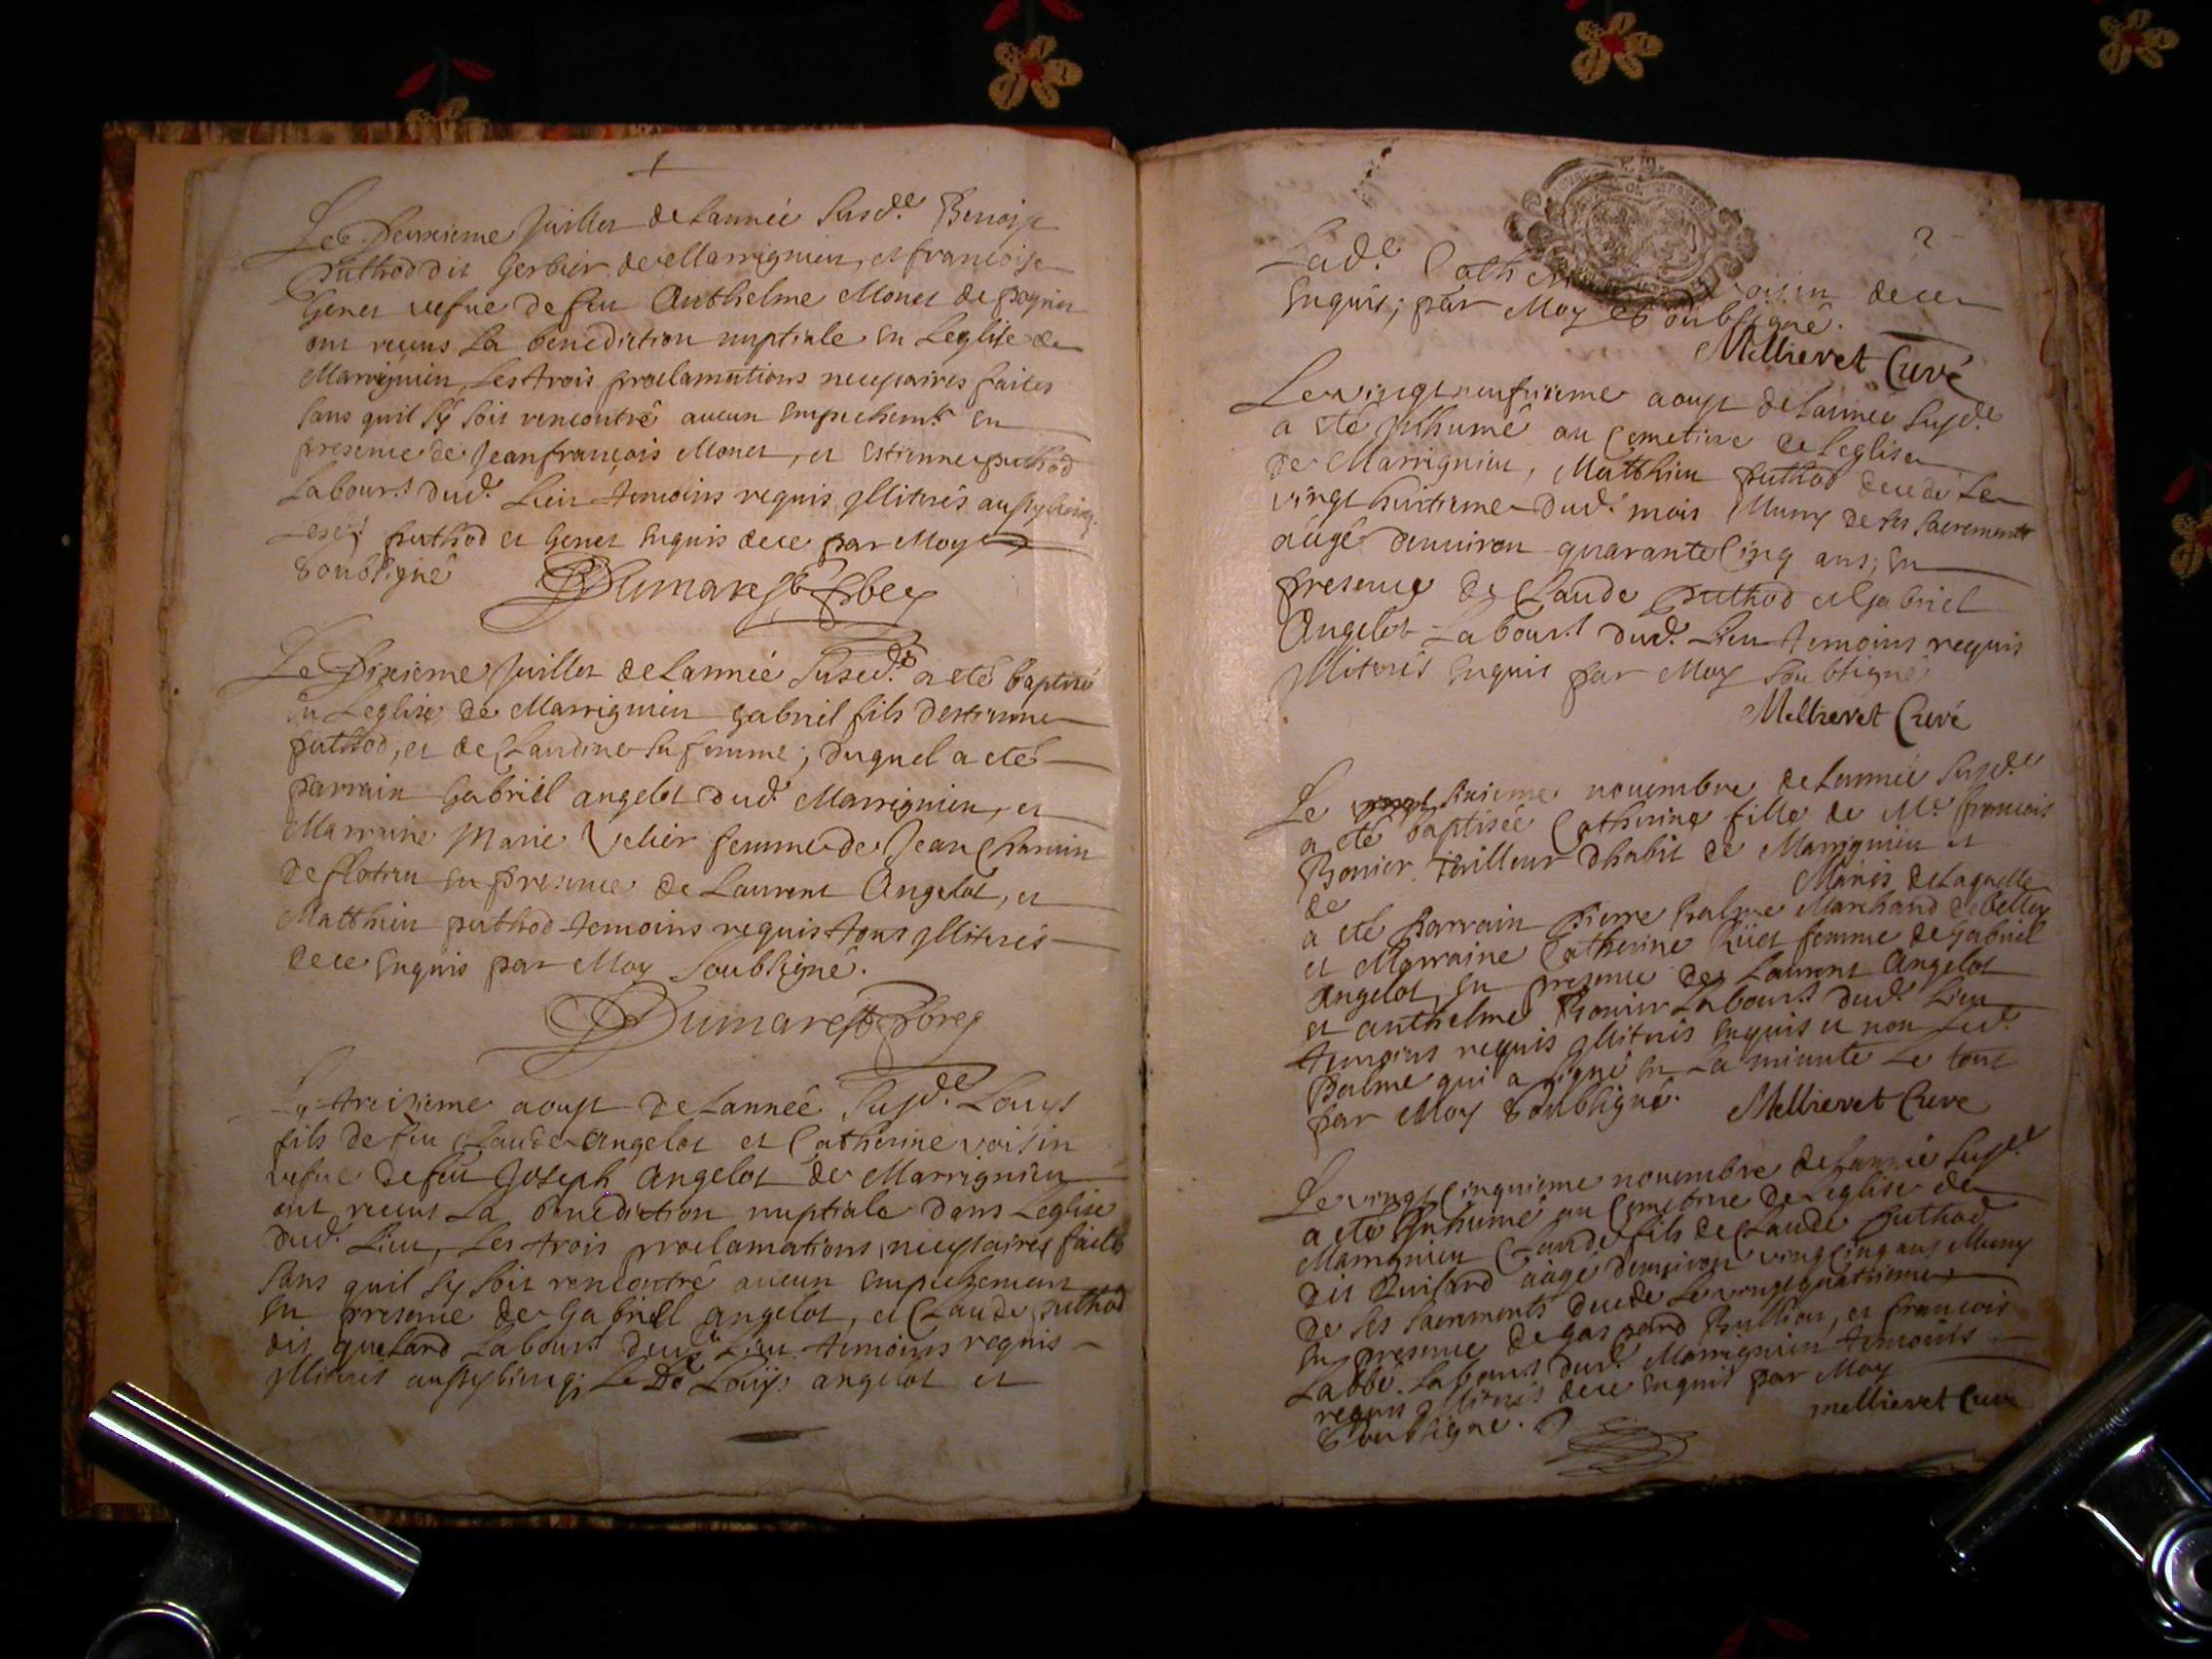 1
Le Deuxieme Juillet de Lannée susd.e Benoist
puthod dit Gerbier de Marrignieu, et francoise
Genet vefue de feu Anthelme Monet de pognieu
ont reçus La benediction nuptiale en Leglise de
Marrignieu, Les trois proclamations necessaires faites
sans quil sy soit rencontré aucun empechemt. en
presence de Jeanfrançois Monet, et Estienne puthod
Labours dud. Lieu temoins requis jlliterés aussy bien q.
puthod et Genet Enquis de ce par Moy
soubsigné
Dumarest pbre
Le Dixieme Juillet de Lannée susd.e a eté baptisé
en Leglise de Marrignieu Gabriel fils destienne
puthod, et de Claudine sa femme; duquel a eté
parrain Gabriël angelot dud. Marrignieu, et
Marraine Marie Velier femme de Jean Chanvin
de flotieu en presence de Laurent Angelot, et
Matthieu puthod temoins requis tous jlliterés
de ce Enquis par Moy soubsigné.
Dumarest pbre
Le treizieme aoust de Lannée susd.e Louys
fils de feu Claude Angelot et Catherine voisin
vefue de feu Joseph Angelot de Marrignieu
ont recus La benediction nuptiale dans Leglise
dud. Lieu, Les trois proclamations necessaires faites
sans quil sy soit rencontré aucun empechement
en presence de Gabriell angelot, et Claude puthod
dit quetard Labours dud. Lieu temoins requis
jllitrés aussy bien q; Le d. Louys angelot et
2
Lad.e Cathe voisin de ce
Enquis; par Moy soubsigné.
Mellieret Curé
Le vingt neufuieme aoust de Lannée susd.e
a eté Jnhumé au Cemetiere de Leglise
de Marrignieu, Matthieu puthod decedé Le
vingt huitieme dud. mois Muny de ses sacrements
aägé denuiron quarante Cinq ans; en
presence de Claude puthod et Gabriel
Angelot Labours dud. Lieu temoins requis
jllitérés Enquis par Moy soubsigné
Mellieret Curé
Le sixieme nouembre de Lannée susd.e
a eté baptisée Catherine fille de M.e francois
Bonier tailleur dhabit de Marrignieu et
de Mariés de Laquelle
a eté parrain pierre balme Marchand de belley
et Marraine Catherine femme de gabriel
angelot, en presence de Laurent Angelot
et anthelme Bonier Labours dud. Lieu
temoins requis jlliterés enquis et non Led.
balme qui a signé en La minute Le tout
par Moy soubsigné. Mellieret Curé
Le vingt Cinquieme nouembre de Lannée susd.e
a eté Jnhumé au Cemetiere de Leglise de
Marrignieu Claude fils de Claude puthod
dit aägé denuiron vingt Cinq ans Muny
de ses sacrements decedé Le vingt quatrieme
en presence de gaspard Bullion, et francois
Labbé Labours dud. Marrignieu temoins
requis jlliterés de ce enquis par Moy
soubsigne. mellieret Curé